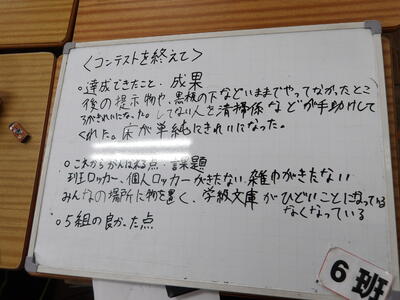 <コンテストを終えて>
○達成できたこと・成果
後の提示物や、黒板の下などいままでやってなかったところがきれいになった。してない人を清掃係などが手助けしてくれた。床が単純にきれいになった。
○これからがんばれる点・課題
班ロッカー、個人ロッカーがきたない、雑巾がきたない
みんなの場所に物を置く、学級文庫がひどいことになっている
なくなっている
○5組の良かった点
6班